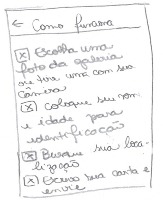 ← Como funciona
☒ Escolha uma
foto da galeria
ou tire uma com sua
câmera
☒ Coloque seu nome
e idade para
identificação
☒ Busque sua loca-
lização
☒ Escreva sua carta e
envie